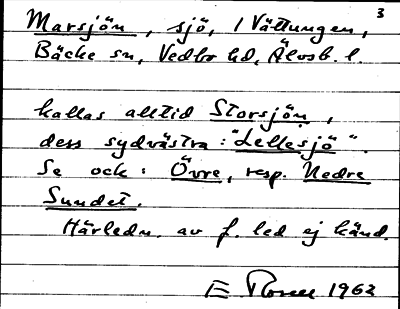 3
Marsjön, sjö, i Vättungen,
Bäcke sn, Vedbo hd, Älvsb. l.
kallas alltid Storsjön,
dess sydvästra: "Lellesjö".
Se ock: Övre, resp. Nedre
Sundet.
Härledn. av f. led ej känd.
E 1962